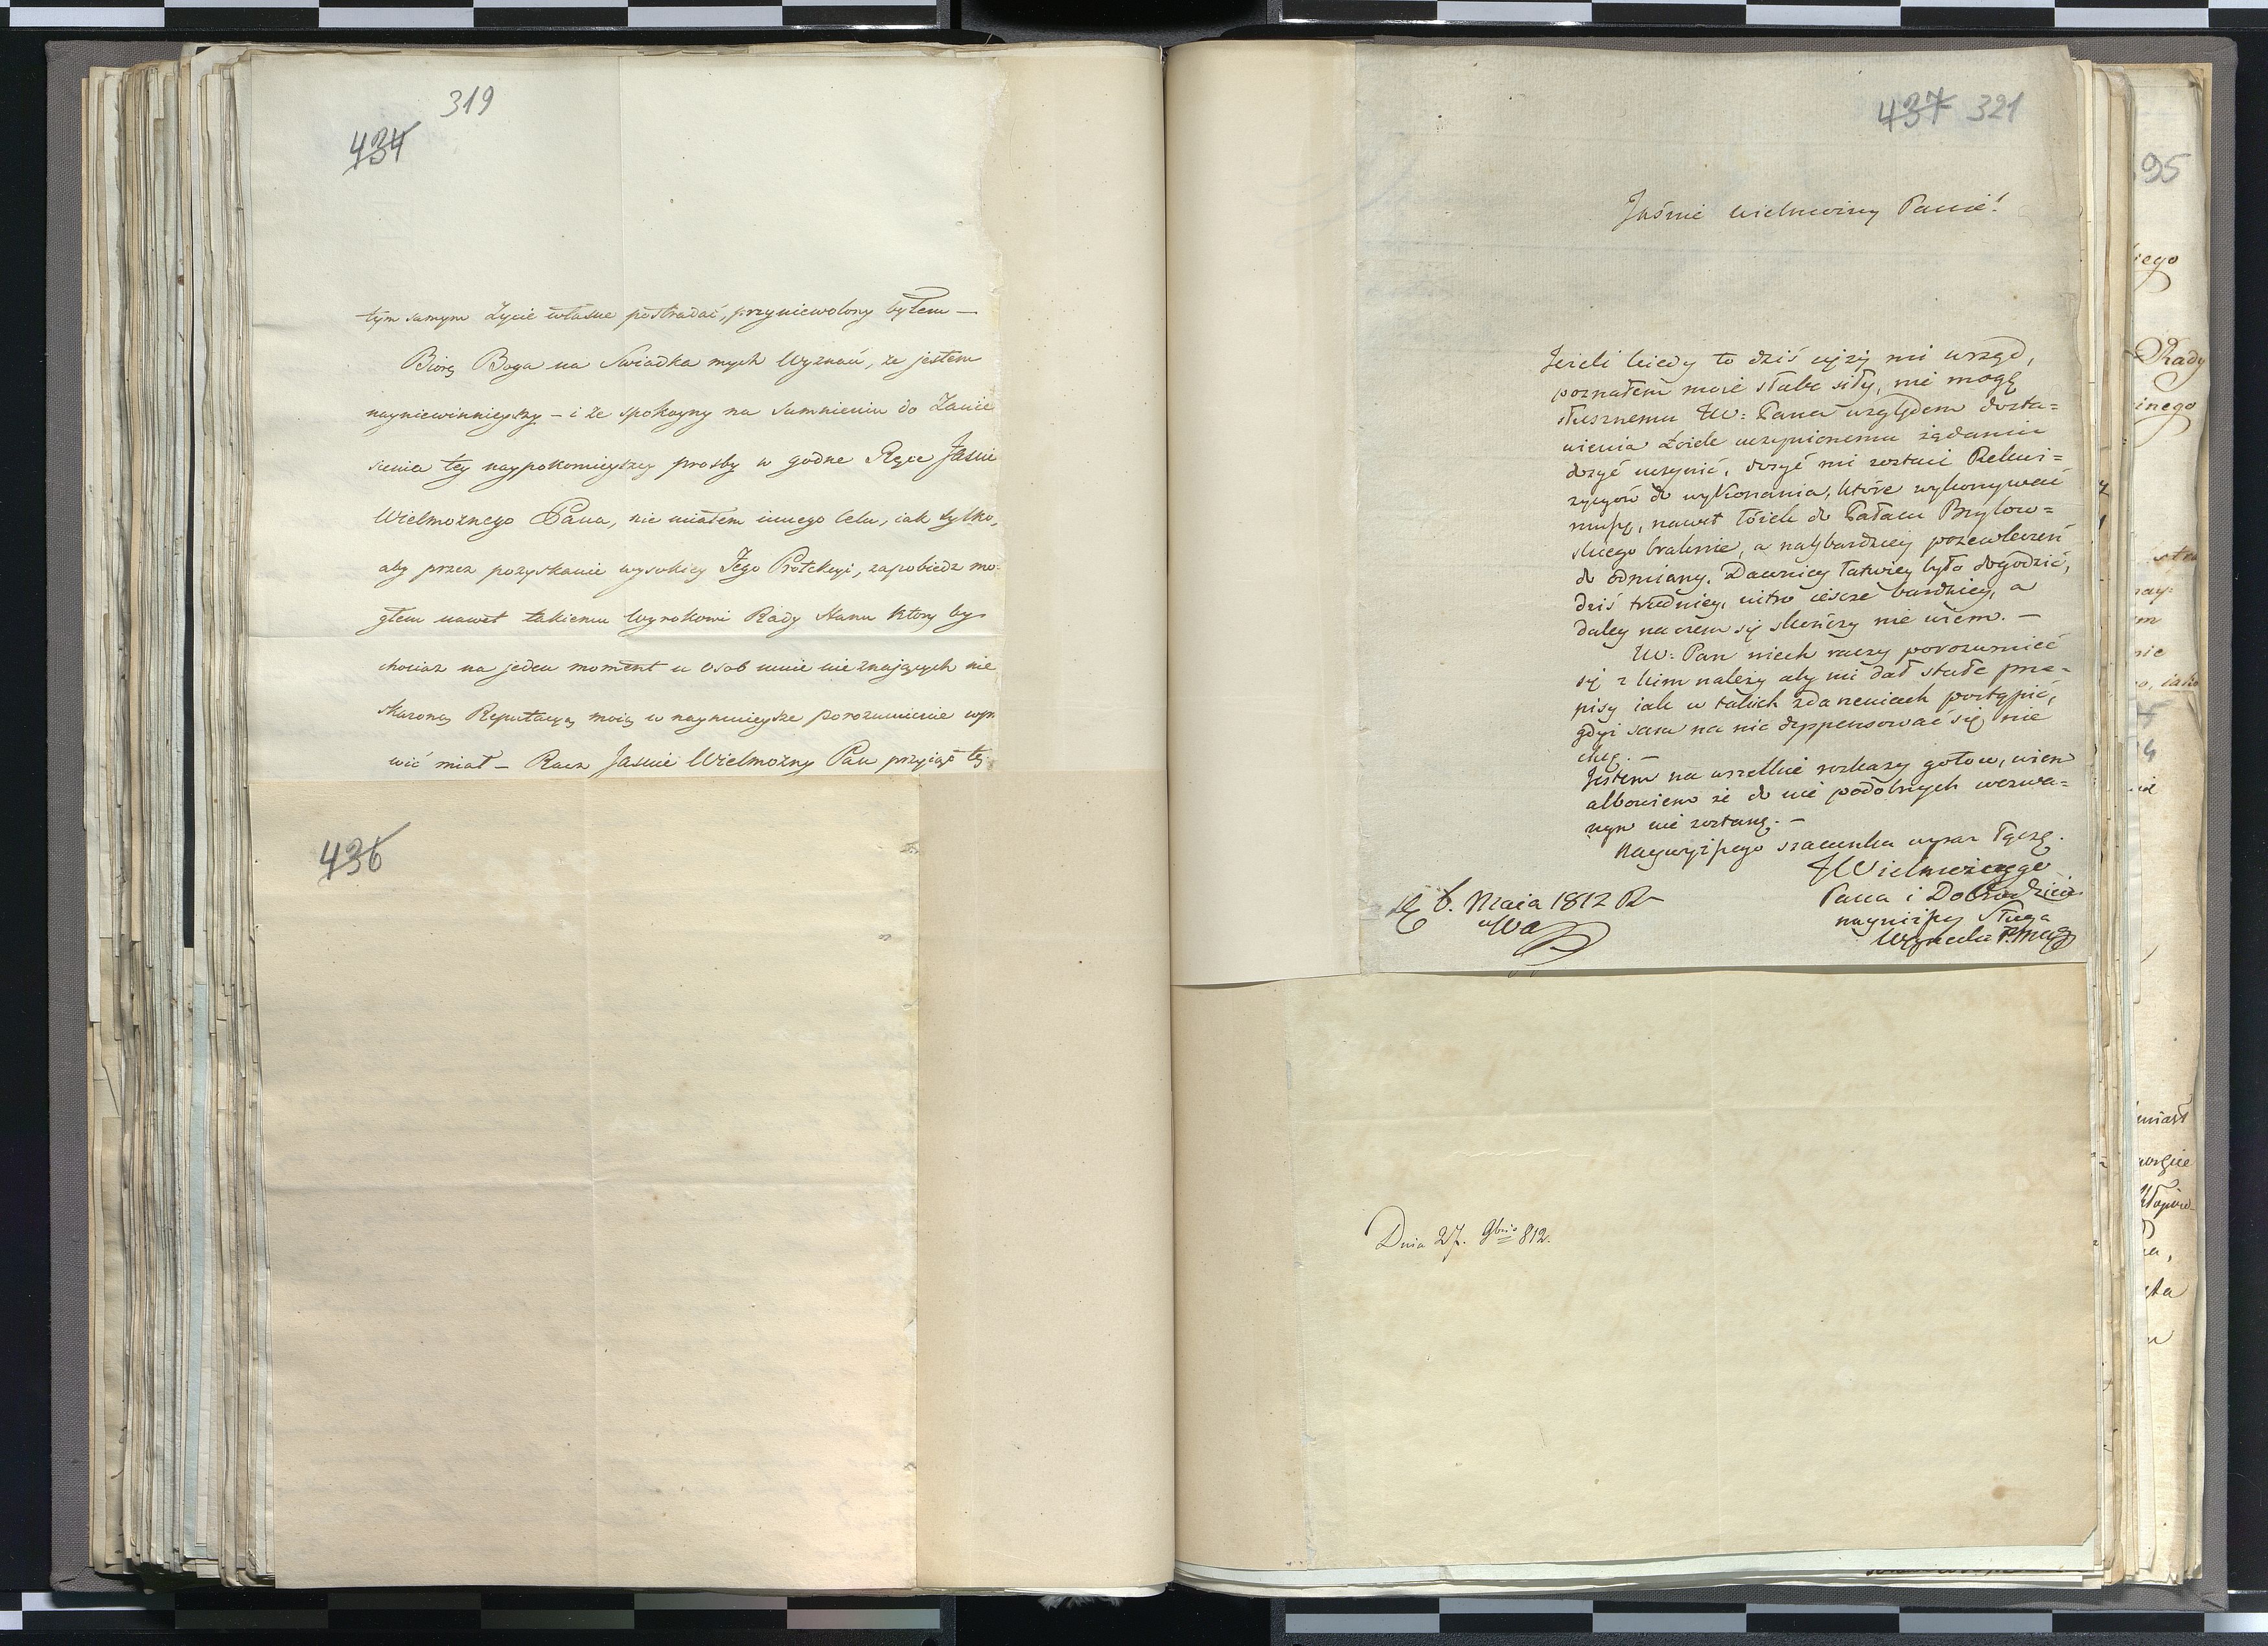 319
434
tym samym Życie własne postradać, przyniewolony byłem —
Biorę Boga na Swiadka mych Wyznań, że jestem
nayniewinnieyszy – i że spokoyny na Sumnieniu do Zanie
sienia tey naypokornieyszey prosby w godne Ręce Jasnie
Wielmożnego Pana, nie miałem innego Celu, iak tylko,
aby przez pozyskanie wysokiey Jego Protekcyi, zapobiedz mo-
głem nawet takiemu Wyrokowi Rady Stanu który by
chociaz na jeden moment u Osob mnie nie znaiących nie
skazoną Reputacyą moią w naymnieysze porozumienie wpr
wić miał – Racz Jasnie Wielmożny Pan przyiąć tę
436
437 321
Jaśnie Wielmożny Panie!
Jeżeli kiedy to dziś cięży mi urząd,
poznałem moie słabe siły, nie mogę
słusznemu JW: Pana względem dosta=
wienia Łóżek uczynionemu żądaniu
dosyć uczynić, dosyć mi zostaie Rekwi=
zycyów do wykonania, które wykonywać
muszę, nawet łóżek do Pałacu Brylow=
skiego braknie, a naybardziey prześcieradeł
do odmiany. Dawniey łatwiey było dogodzić,
dziś trudniey, iutro ieszcze bardziey, a
daley na czem się skończy nie wiem. —
JW: Pan niech raczy porozumieć
się z kim należy aby mi dał stałe prze=
pisy iak w takich zdarzeniach postąpić,
gdyż sam na nic dyspensować się nie
chcę. —
Jestem na wszelkie rozkazy gotow, wiem
albowiem że do nie podobnych wezwa=
nym nie zostanę. —
Naywyższego szacunku wyraz łączę.
JWielmożnego
Pana i Dobrodzieia
nayniższy Sługa
D. 6. Maia 1812 R
Dnia 27. 9bris 812.